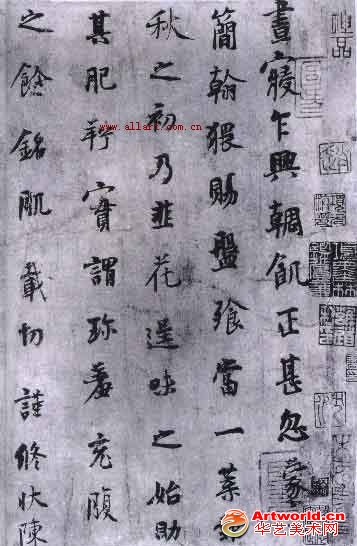 晝寢乍興輖飢正甚忽蒙
簡翰猥賜盤飧當一葉報
秋之初乃韭花逞味之始助
其肥羜實謂珍羞充腹
之餘銘肌載切謹修狀陳
www.allart.com.cn
Artworld.cn
华艺美术网